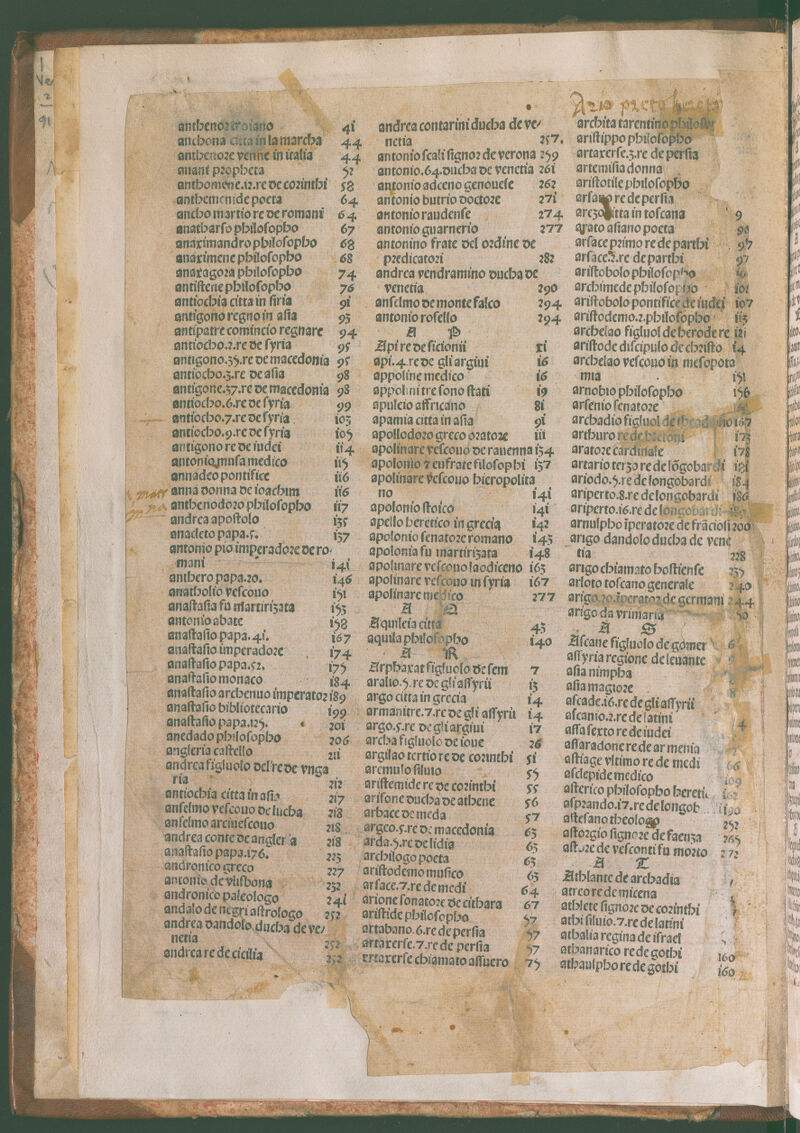 anthenore troiano 41
anchona citta in la marcha 44
anthenore venne in italia 44
anani propheta 52
anthomene.12.re de corinthi 58
anthemenide poeta 64
ancho martio re de romani 64
anatharso philosopho 67
anaximandro philosopho 68
anaximene philosopho 68
anaxagora philosopho 74
antistene philosopho 76
antiochia citta in siria 91
antigono regno in asia 93
antipatre comincio regnare 94
antiocho.2.re de syria 95
antigono.35.re de macedonia 95
antiocho.3.re de asia 98
antigone.37.re de macedonia 98
antiocho.6.re de syria 99
antiocho.7.re de syria 103
antiocho.9.re de syria 105
antigono re de iudei 114
antonio musa medico 115
annadeo pontifice 116
anna donna de ioachim 116
anthenodoro philosopho 117
andrea apostolo 135
anacleto papa.5. 137
antonio pio imperadore de ro-
mani 141
anthero papa.20. 146
anatholio vescouo 151
anastasia fu martirizata 153
antonio abate 158
anastasio papa.41. 167
anastasio imperadore 174
anastasio papa.52. 175
anastasio monaco 184
anastasio archenuo imperator 189
anastasio bibliotecario 199
anastasio papa.125. 201
anedado philosopho 206
angleria castello 211
andrea figluolo del re de vnga
ria 212
antiochia citta in asia 217
anselmo vescouo de lucha 218
anselmo arciuescouo 218
andrea conte de angler a 218
anastasio papa.176. 223
andronico greco 227
antonio de vlisbona 232
andronico paleologo 241
andalo de negri astrologo 252
andrea dandolo ducha de ve/
netia 252
andrea re de cicilia 252
andrea contarini ducha de ve/
netia 257.
antonio scali signor de verona 259
antonio.64.ducha de venetia 261
antonio adceno genouese 262
antonio butrio doctore 271
antonio raudense 274
antonio guarnerio 277
antonino frate del ordine de
predicatori 282
andrea vendramino ducha de
venetia 290
anselmo de monte falco 294
antonio rosello 294
A P
Api re de sicionii xi
api.4.re de gli argiui 16
appoline medico 16
appolini tre sono stati 19
apuleio affricano 81
apamia citta in asia 91
apollodoro greco oratore 111
apolinare vescouo de rauenna 134
apolonio ⁊ eufrate filosophi 137
apolinare vescouo hieropolita
no 141
apolonio stoico 141
apello heretico in grecia 142
apolonio senatore romano 143
apolonia fu martirizata 148
apolinare vescouo laodiceno 163
apolinare vescouo in syria 167
apolinare medico 277
A Q
Aquileia citta 43
aquila philosopho 140
A R
Arphaxat figluolo de sem 7
aralio.5.re de gli assyrii 13
argo citta in grecia 14
armanitre.7.re de gli assyrii 14
argo.5.re de gli argiui 17
archa figluolo de ioue 26
argilao tertio re de corinthi 51
aremulo siluio 55
aristemide re de corinthi 55
arisone ducha de athene 56
arbace de meda 57
argeo.5.re de macedonia 63
arda.5.re de lidia 63
archilogo poeta 63
aristodemo musico 63
arsace.7.re de medi 64
arione sonatore de cithara 67
aristide philosopho 57
artabano.6.re de persia 57
artaxerse.7.re de persia 57
ertaxerse chiamato assuero 75
archita tarentino philosop
aristippo philosopho
artaxerse.3.re de persia
artemisia donna
aristotile philosopho
arsano re de persia
arezo citta in toscana 9
arato asiano poeta 90
arsace primo re de parthi 97
arsace.2.re de parthi 97
aristobolo philosopho
archimede philosopho 101
aristobolo pontifice de iudei 107
aristodemo.2.philosopho 113
archelao figluol de herode re 121
aristode discipulo de christo 14
archelao vescouo in mesopota
mia 151
arnobio philosopho 156
arsenio senatore
archadio figluol de theodosio 167
arthuro re de bretoni 173
aratore cardinale 178
artario terzo re de lõgobardi 181
ariodo.5.re de longobardi 184
ariperto.8.re de longobardi 186
ariperto.16.re de longobardi
arnulpho iperatore de frãcioli 200
arigo dandolo ducha de vene
tia 228
arigo chiamato hostiense 235
arloto toscano generale 240
arigo.20.iperator de germani 244
arigo da vrimaria 50
A S
Ascane figluolo de gomer 6
assyria regione de leuante
asia nimpha
asia magiore 8
ascade.16.re de gli assyrii
ascanio.2.re de latini
assa sexto re de iudei 4
assaradone re de armenia
astiage vltimo re de medi 66
asclepide medico 109
asterico philosopho hereti 162
asprando.17.re de longob 190
astesano theologo 252
astorgio signore de faenza 265
astore de vesconti fu morto 272
A T
Athlante de archadia
atreo re de micena
athlete signore de corinthi
athi siluio.7.re de latini
athalia regina de israel
athanarico re de gothi 160
athaulpho re de gothi 160